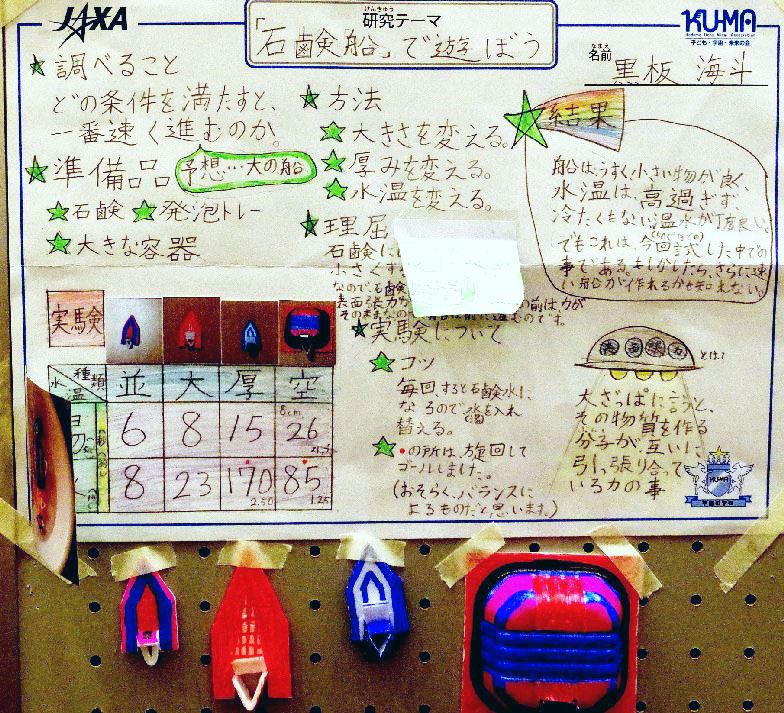 JAXA
けんきゅう
研究テーマ
「石鹸船」で遊ぼう
KU-MA
子ども・宇宙・未来の会
なまえ
名前 黒板 海斗
調べること
どの条件を満たすと、
一番速く進むのか。
準備品
予想…大の船
石鹸 発泡トレー
大きな容器
方法
大きさを変える。
厚みを変える。
水温を変える。
理屈
石鹸に
小さくす
なので、石鹸
表面張力
の前は、力が
前に進むのです。
結果
船は、うすく、小さい物が良く、
水温は、高過ぎず、
冷たくもない温水が丁度良い。
でもこれは、今回試した中での
事である。もしかしたら、さらに速
い船が作れるかも知れない。
実験
種類
水温
並 大 厚 空
6 8 15 8cm 26
8 23 170 85
2.50 1.25
実験について
コツ
毎回、すると石鹸水に
なるので、水を入れ
替える。
の所は、旋回して
ゴールしました。
(おそらく、バランスに
よるものだと思います。)
表面張力
とは?
大ざっぱに言うと、
その物質を作る
分子が、互いに
引っ張り合って
いる力の事
KU-MA